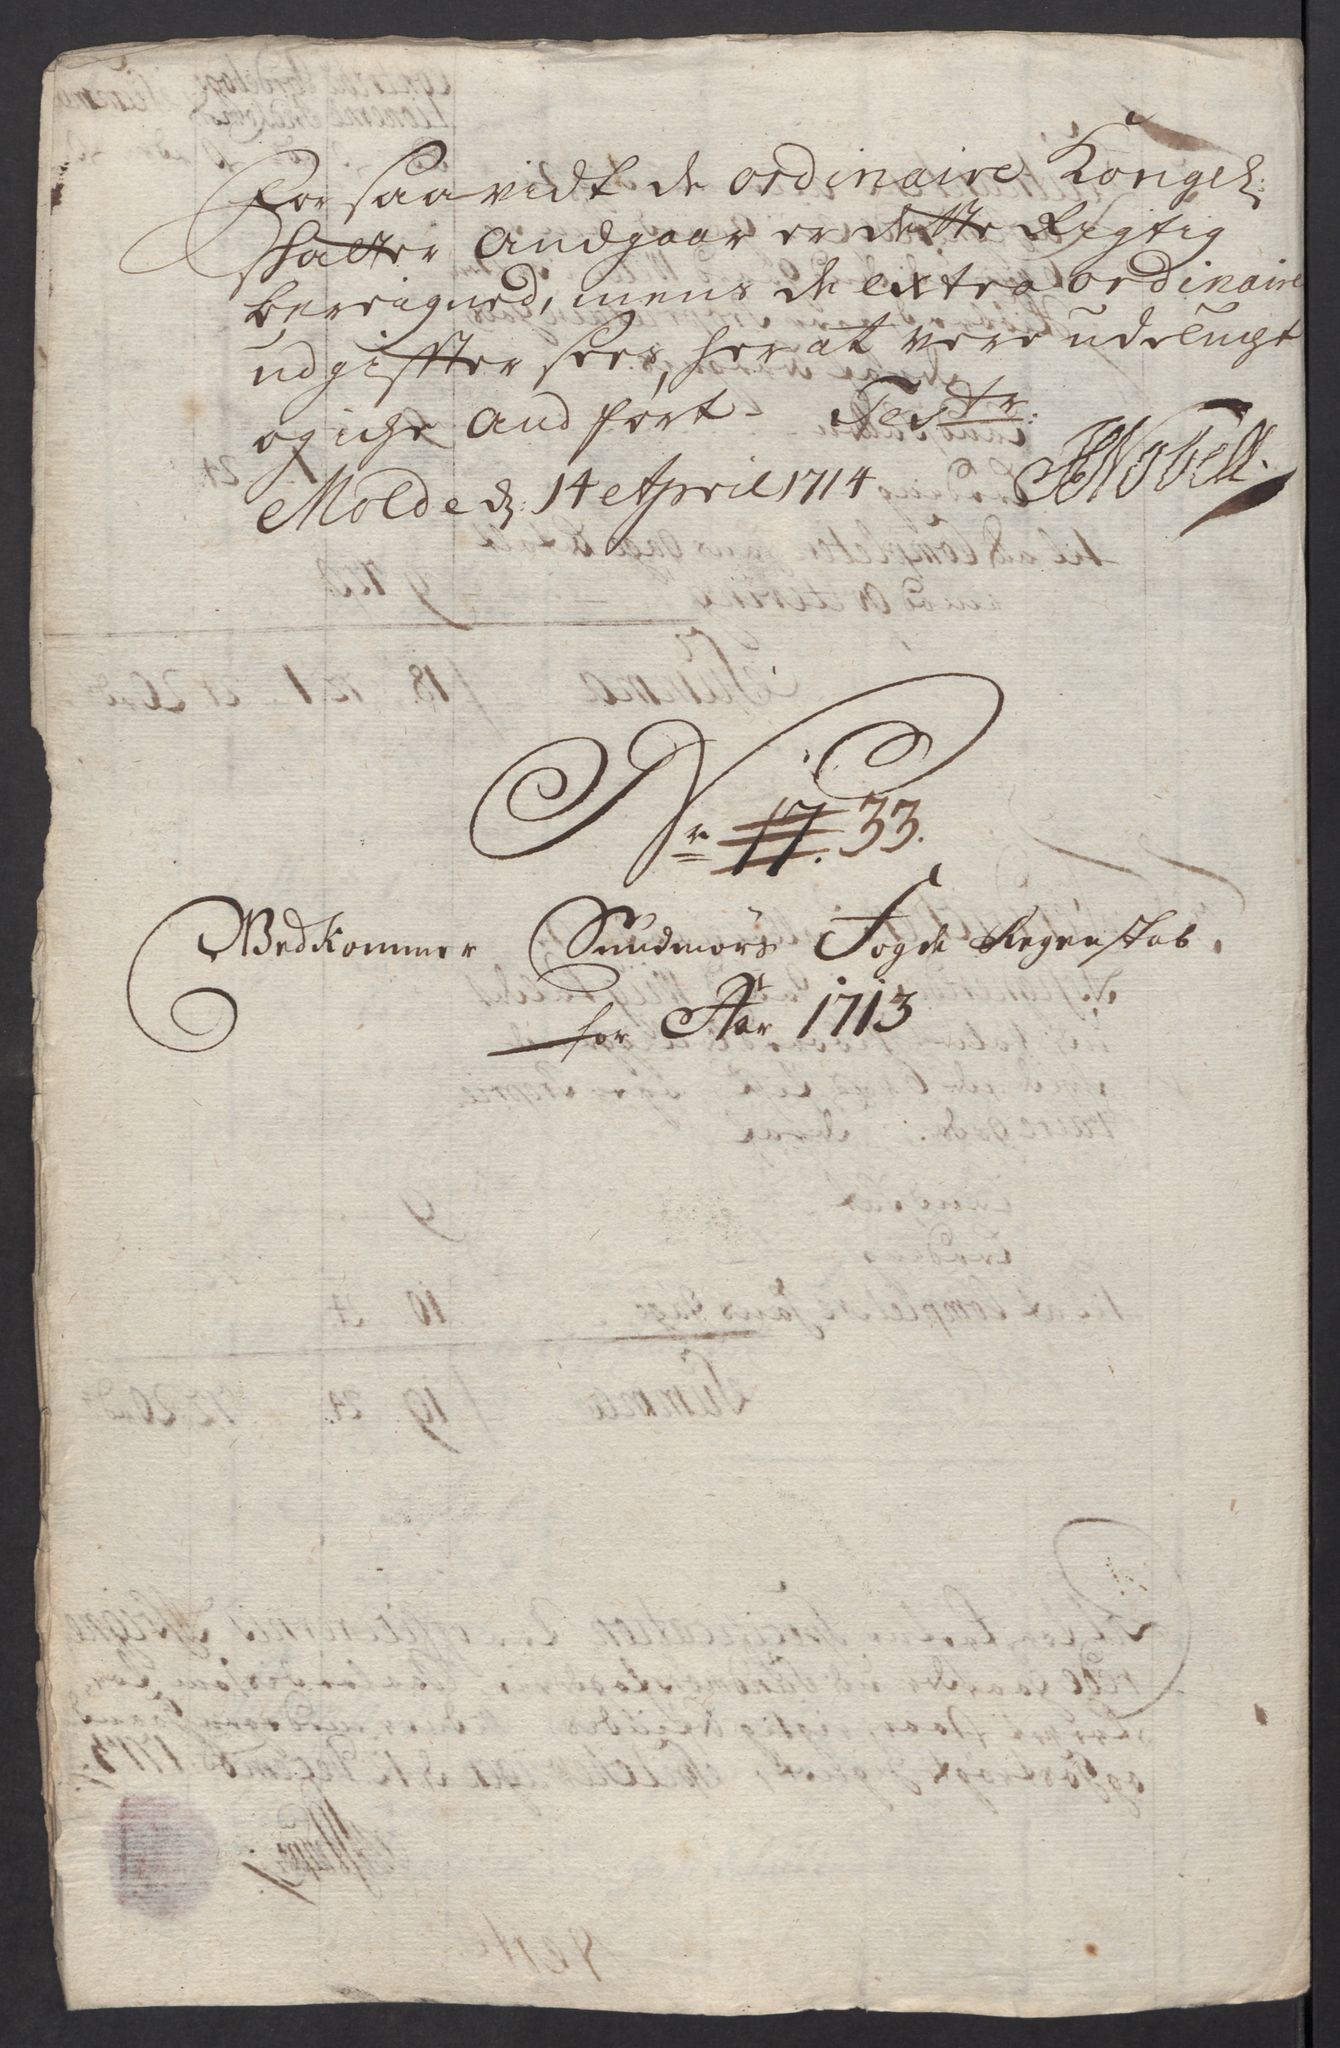 For saavidt de ordinaire Kongel:
Skatter Andgaar er dette Rigtig
bereigned, mens de extra ordinaire
udgiffter sees, her at vere udelugt
og iche Andfört Testr:
Molde d: 14 April 1714 HNobell.
Nr 17. 33.
Vedkommer Sundmörs Fogde Regenskab,
for Aar 1713